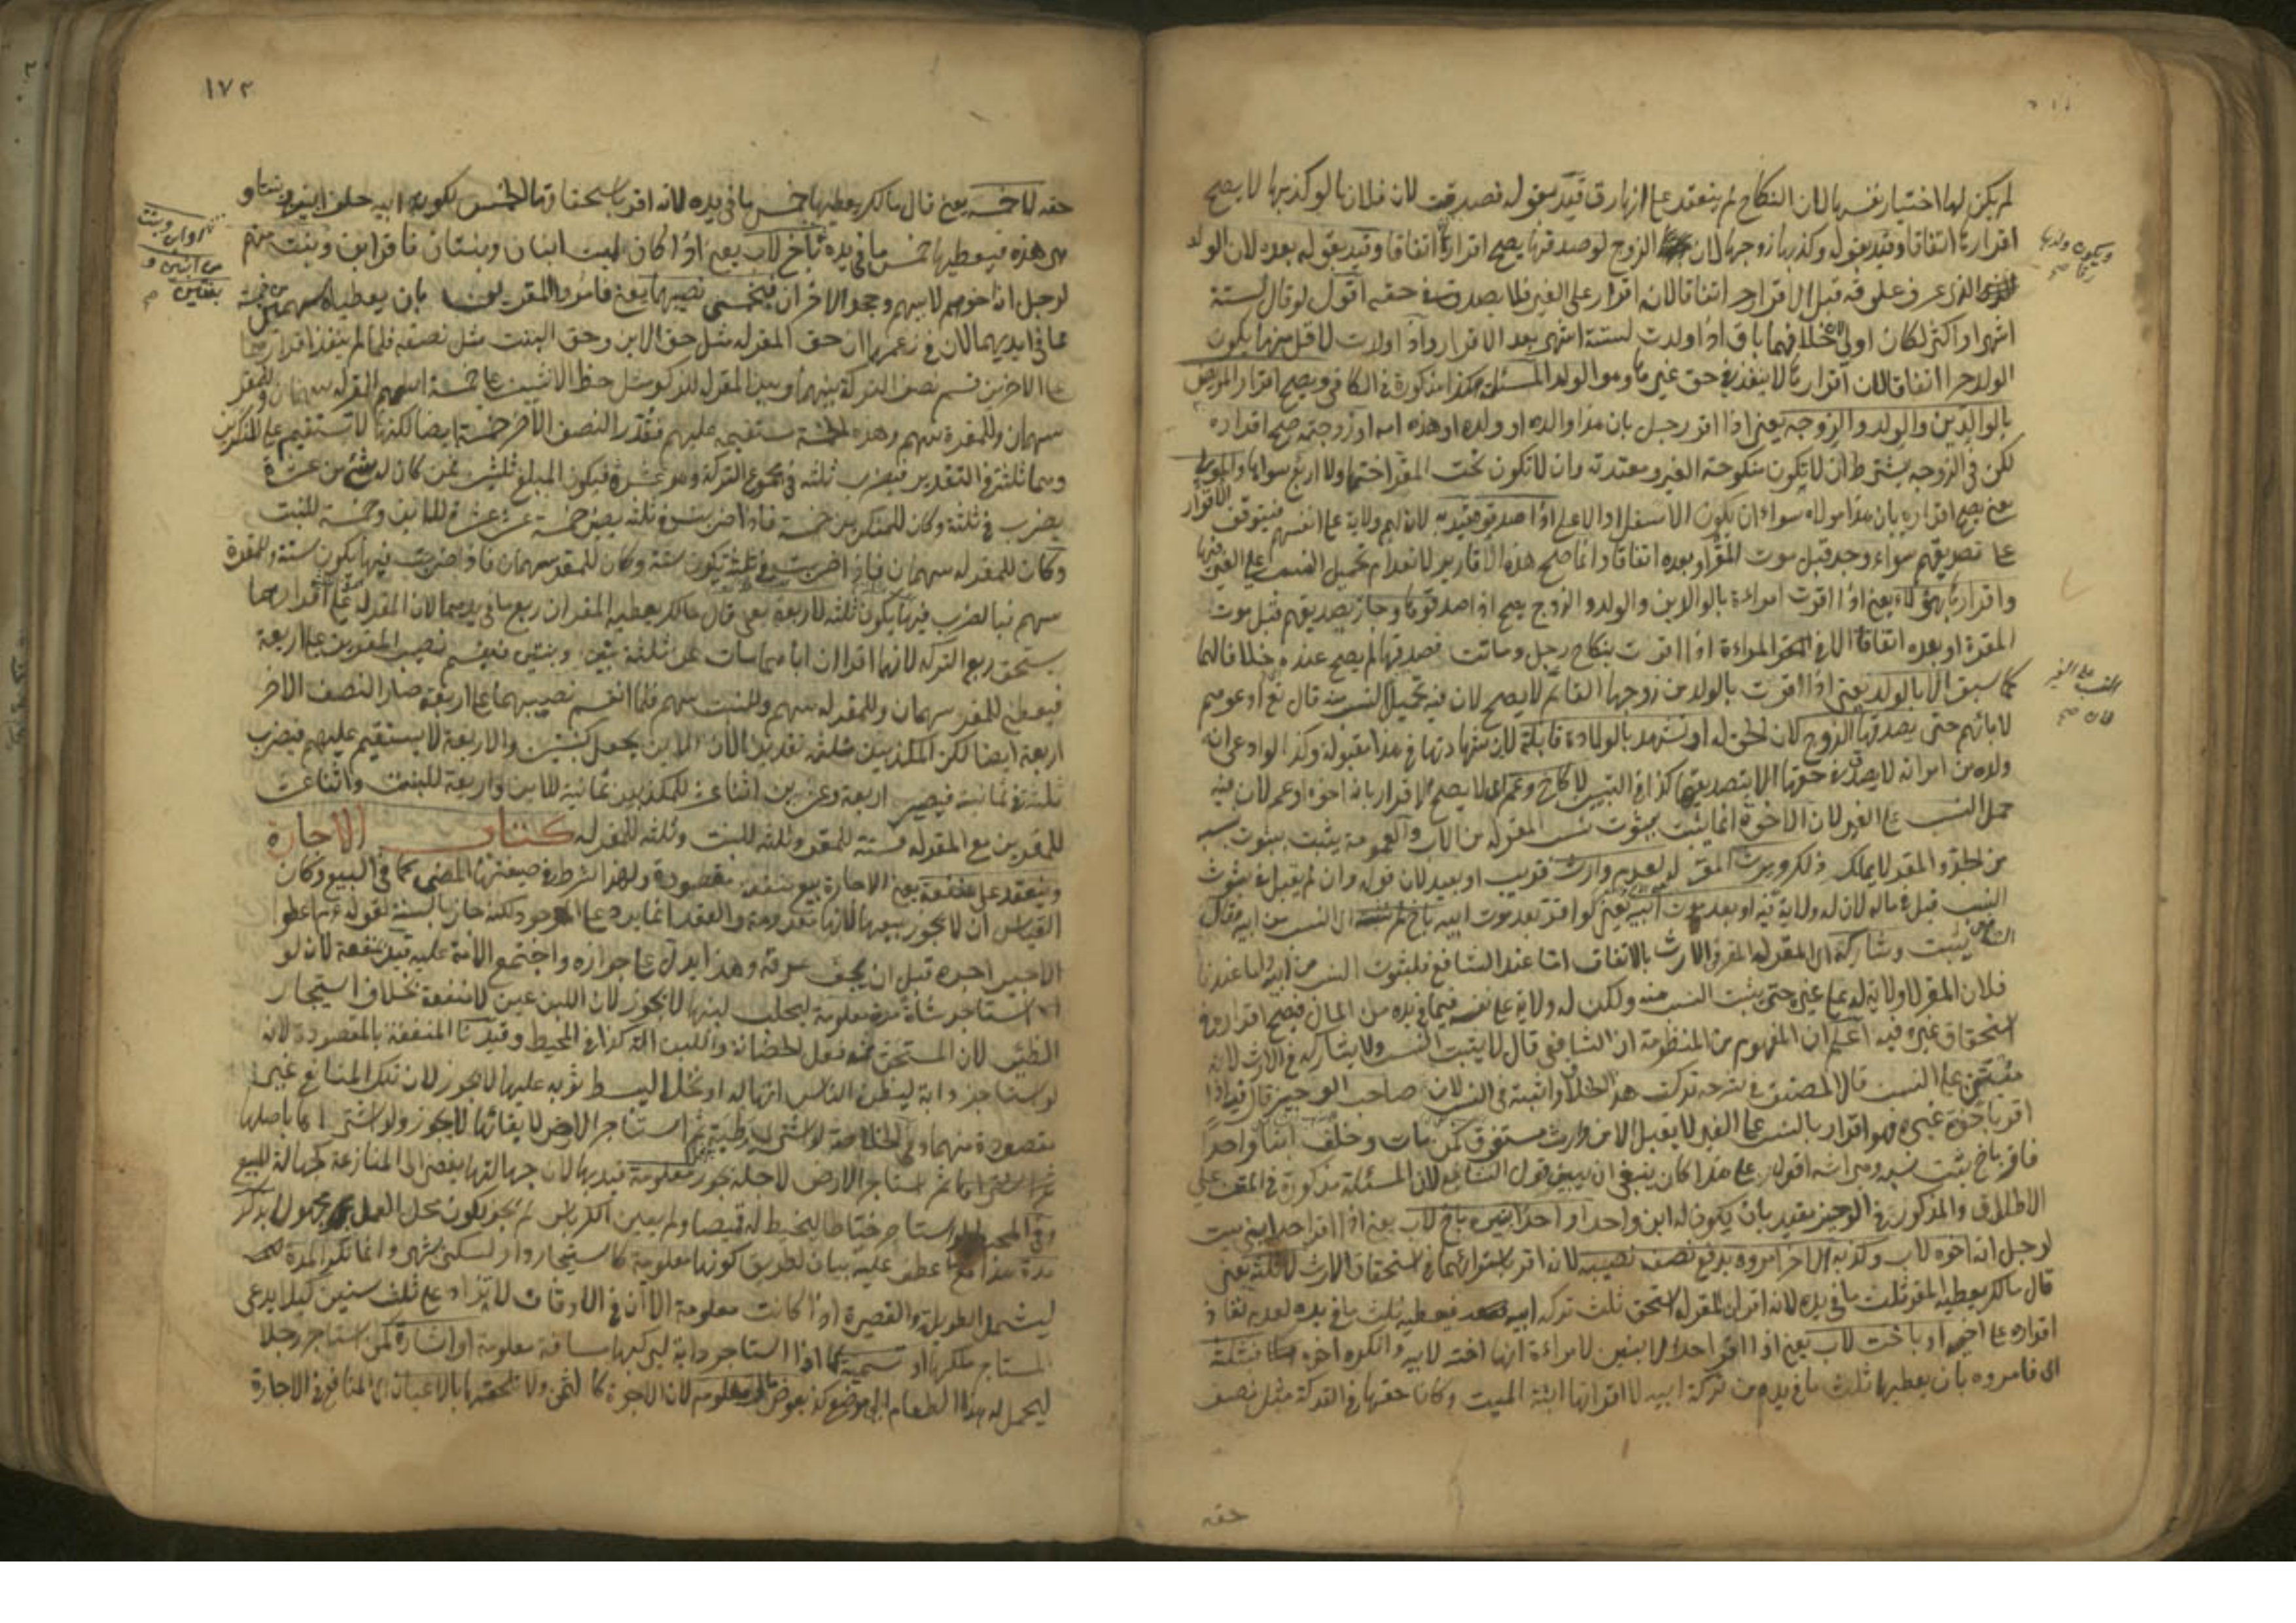 لم يكن لها اختيار نفسها لان النكاح لم ينعقد على انها رق قيد بقوله فصدقت لان فلانا لو كذبها لا يصح
اقرارها اتفاقا وقيد بقوله وكذبها زوجها لان الزوج لو صدقها يصح اقرارها اتفاقا وقيد بقوله بعده لان الولد
الذي عرف علوقه قبل الاقرار حر اتفاقا لانه اقرار على الغير فلا يصدق في حقه اقول لو قال لستة
اشهر او اكثر لكان اولى لان خلافهما باق اذا ولدت لستة اشهر بعد الاقرار واذا ولدت لاقل منها يكون
الولد حرا اتفاقا لان اقرارها لا ينفذ في حق غيرها وهو الولد المسئلة هكذا مذكورة في الكافي ويصح اقرار المريض
بالوالدين والولد والزوجة يعني اذا اقر رجل بان هذا والده او ولده او هذه امه او زوجته صح اقراره
لكن في الزوجة يشترط ان لا يكون منكوحة الغير ومعتدته وان لا تكون تحت المقر اختها ولا اربع سواها والمولى
يعني يصح اقراره بان هذا مولاه سواء ان يكون الاسفل او الاعلى اذا صدقوه قيد به لان لهم ولاية على انفسهم فيتوقف الاقرار
على تصديقهم سواء وجد قبل موت المقر او بعده اتفاقا وانما صح هذه الاقارير لانعدام تحميل النسب على الغير فيها
واقرارها بهؤلاء يعني اذا اقرت امراءة بالوالدين والولد والزوج يصح اذا صدقوها وجاز تصديقهم قبل موت
المقرة او بعده اتفاقا الا في المراءة اذا اقرت بنكاح رجل وماتت فصدقها لم يصح عنده خلافا لهما
كما سبق الا بالولد يعني اذا اقرت بالولد من زوجها القائم لا يصح لان فيه تحميل النسب منه قال تع ادعوهم
لابائهم حتى يصدقها الزوج لان الحق له او تشهد بالولادة قابلة لان شهادتها في هذا مقبولة وكذا لو ادعى انه
ولده من امراته لا يصدق في حقها الا بتصديقها كذا في التبيين لا كاخ وعم اي لا يصح الاقرار بانه اخوه او عم لان فيه
حمل النسب على الغير لان الاخوة انما يثبت بثبوت نسب المقر له من الاب والعمومة يثبت بثبوت نسبه
من الجد والمقر لا يملك ذلك ويرث المقر له لعدم وارث قريب او بعيد لان قوله وان لم يقبل في ثبوت
النسب قبل في ماله لان له ولاية فيه او بعد موت ابيه يعني لو اقر بعد موت ابيه باخ لم نثبته اي النسب من ابيه وقال
الشافعي يثبت وشاركه اي المقر له المقر في الارث بالاتفاق اما عند الشافعي فلثبوت النسب من ابيه واما عندنا
فلان المقر لا ولاية له على غيره حتى يثبت النسب منه ولكن له ولاية على نفسه فيما في يده من المال فيصح اقراره في
استحقاق غيره فيه اعلم ان المفهوم من المنظومة ان الشافعي قال لا يثبت النسب ولا يشاركه في الارث لانه
على النسب قال المصنف في شرحه تركت هذا الخلاف واثبته في النسب لان صاحب الوجيز قال فيه اذا
اقر باخوة غيره فهو اقرار بالنسب على الغير لا يقبل الا من وارث مستغرق كمن مات وخلف ابنا واحدا
فاقر باخ يثبت نسبه وميراثه اقول على هذا كان ينبغي ان يبين قول الشافعي لان المسئلة مذكورة في المتن على
الاطلاق والمذكور في الوجيز مقيد بان يكون له ابن واحد او احد ابنيه باخ لاب يعني اذا اقر احد ابني ميت
لرجل انه اخوه لاب وكذبه الاخر امروه بدفع نصف نصيبه لانه اقر باستوائهما في استحقاق الارث لا ثلثه يعني
قال مالك يعطيه المقر ثلث ما في يده لانه اقر ان المقر له استحق ثلث تركة ابيه فيعطيه ثلث ما في يده لعدم نفاذ
اقراره على اخيه او باخت لاب يعني اذا اقر احد الابنين لامراءة انها اخته لابيه وانكره اخوه فبثلثه
اي فامروه بان يعطيها ثلث ما في يده من تركة ابيه لما اقر انها ابنة الميت وكان حقها في التركة مثل نصف
ويكون ولدها
رقا صح
النسب على الغير
لان صح
حقه
١٧٢
حقه لا خمسه يعني قال مالك يعطيها خمس ما في يده لانه اقر باستحقاقها الخمس لكون ابيه خلف ابنين وبنتا و
هي هذه فيعطيها خمس ما في يده باخ لاب يعني اذا كان لميت ابنان وبنتان فاقر ابن وبنت منهم
لرجل انه اخوهم لابيهم وجحد الاخران فيخمس نصيبهما يعني فامروا المقرين بان يعطياه سهمين من خمسة
مما في ايديهما لان في زعمهما ان حق المقر له مثل حق الابن وحق البنت مثل نصفه فلما لم ينفذ اقرارهما
على الاخرين قسم نصف التركة بينهما وبين المقر له للذكر مثل حظ الانثيين على خمسة اسهم للمقر له سهمان وللمقر
سهمان وللمقرة سهم وهذه الخمسة مستقيمة عليهم فنقدر النصف الاخر خمسة ايضا لكنها لا تستقيم على المنكرين
وهما ثلثة في التقدير فيضرب ثلثة في مجموع التركة وهو عشرة فيكون المبلغ ثلثين فمن كان له شيء من عشرة
يضرب في ثلثة وكان للمنكرين خمسة فاذا ضربت في ثلثة يصير خمسة عشر عشرة للابن وخمسة للبنت
وكان للمقر له سهمان فاذا ضربت في ثلثة يكون ستة وكان للمقر سهمان فاذا ضربت فيها يكون ستة وللمقرة
سهم فبالضرب فيها يكون ثلثة لا ربعه يعني قال مالك يعطيه المقران ربع ما في يديهما لان المقر له على اقرارهما
يستحق ربع التركة لانهما اقرا ان اباهما مات عن ثلثة بنين وبنتين فيقسم نصيب المقرين على اربعة
فيعطى للمقر سهمان وللمقر له سهم وللبنت سهم فلما انقسم نصيبهما على اربعة صار النصف الاخر
اربعة ايضا لكن المكذبين ثلثة تقديرا لان الابن يجعل كبنتين والاربعة لا يستقيم عليهم فيضرب
ثلثة في ثمانية فيصير اربعة وعشرين اثنا عشر للمكذبين ثمانية للابن واربعة للبنت واثنا عشر
للمقرين مع المقر له ستة للمقر وثلثة للبنت وثلثة للمقر له كتاب الاجارة
وينعقد على منفعة يعني الاجارة بيع منفعة مقصودة ولهذا شرط في صيغتها المضي كما في البيع وكان
القياس ان لا يجوز بيعها لانها معدومة والعقد انما يرد على الموجود ولكنه جاز بالسنة لقوله عم اعطوا
الاجير اجره قبل ان يجف عرقه وهذا يدل على جوازه واجتمع الامة عليه قيد بمنفعة لان لو
استاجر شاة مدة معلومة ليحلب لبنها لا يجوز لان اللبن عين لا منفعة بخلاف استيجار
الظئر لان المستحق فعل الحضانة واللبن آلة كذا في المحيط وقيدنا المنفعة بالمقصودة لانه
لو استاجر دابة ليظن الناس انها له او نخلا ليبسط ثوبه عليها لا يجوز لان تلك المنافع غير
مقصودة منهما وفي الخلاصة لو اشترى رطبة ثم استاجر الارض لابقائها لا يجوز ولو اشترى باصلها
ثم استاجر الارض لاجله يجوز معلومة قيد بها لان جهالتها يفضي الى المنازعة كجهالة المبيع
وفي المحيط لو استاجر خياطا ليخيط له قميصا ولم يعين الكرباس لم يجز لكون محل العمل مجهولا بذكر
مدة هذا مع ما عطف عليه بيان لطريق كونها معلومة كاستيجار دار لسكنى شهر وانما نكر المدة
ليشمل الطويلة والقصيرة اذا كانت معلومة الا ان في الاوقاف لا يزاد على ثلث سنين كيلا يدعي
المستاجر ملكها او تسمية كما اذا استاجر دابة ليركبها مسافة معلومة او اشارة كمن استاجر رجلا
ليحمل له هذا الطعام الى موضع كذا بعوض معلوم لان الاجرة كالثمن ولا نلحقها بالاعيان اي المنافع في الاجارة